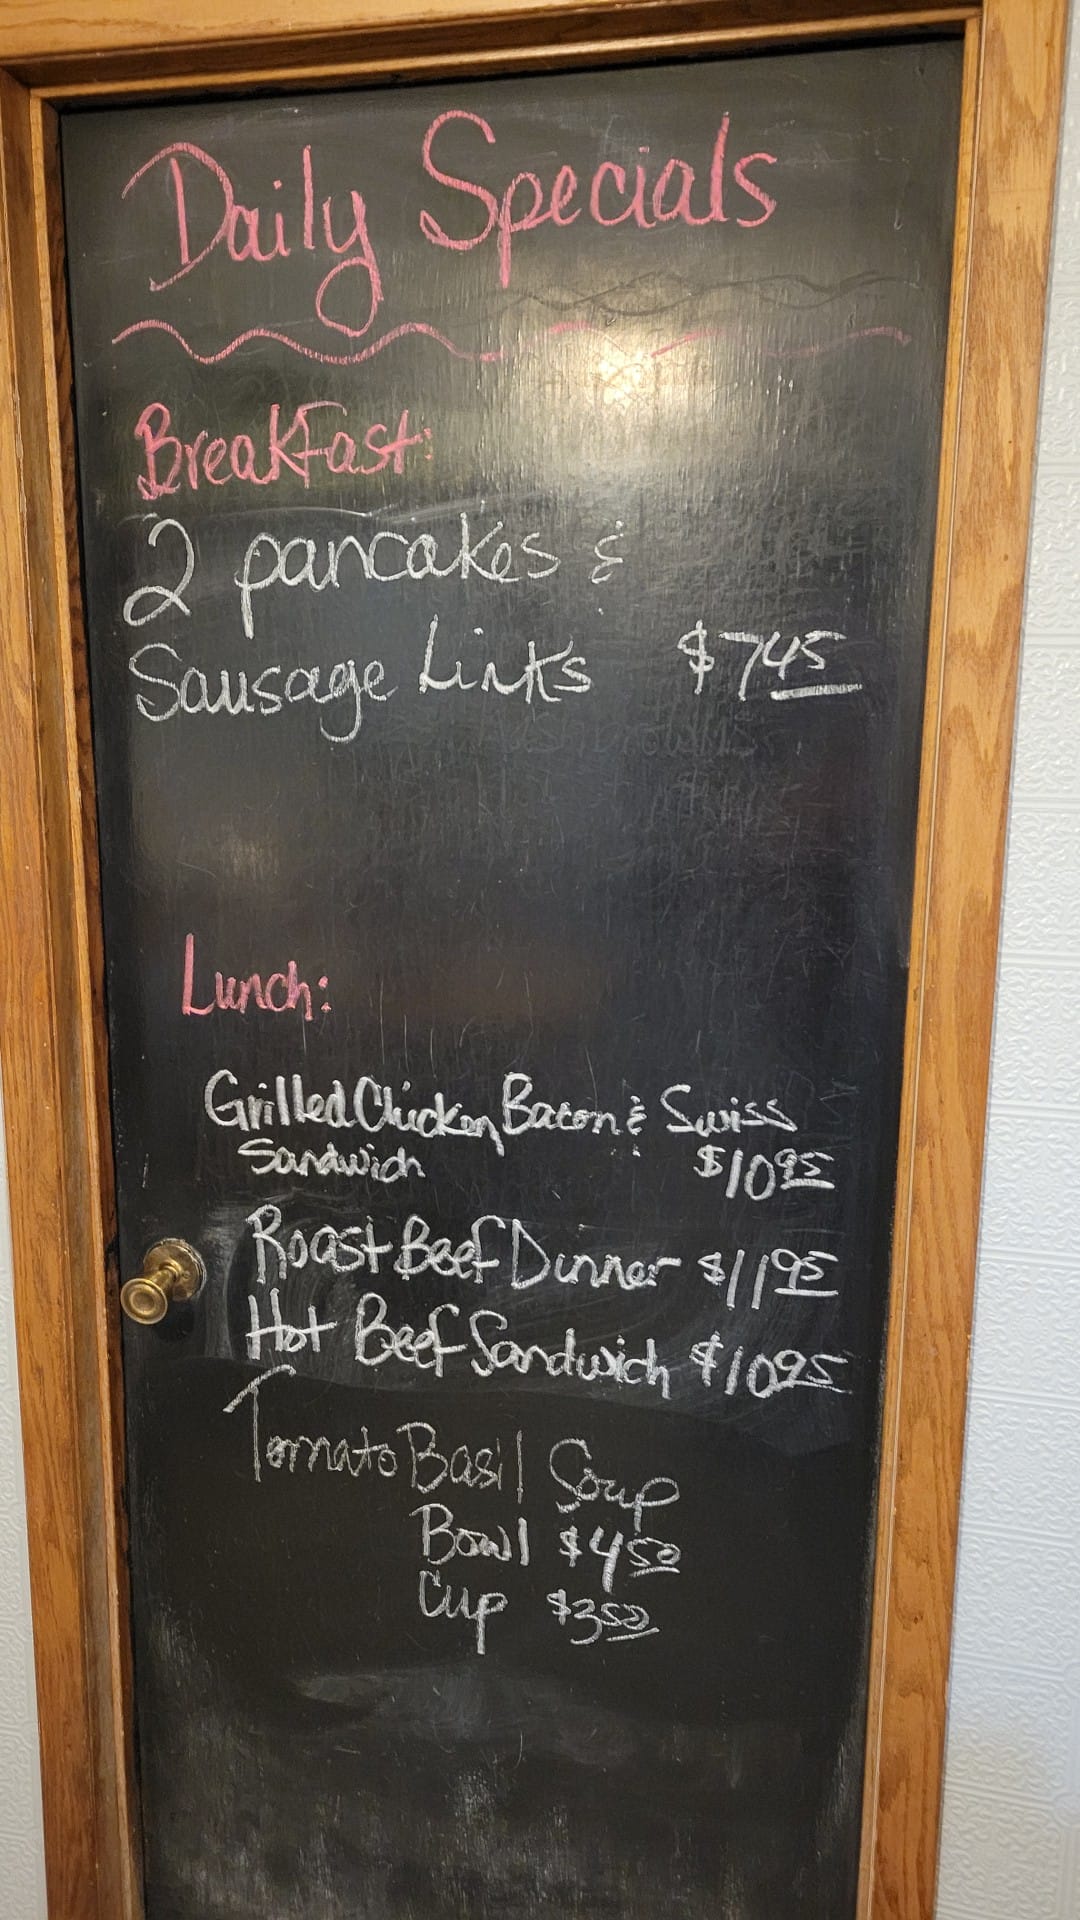 Daily Specials
Breakfast:
2 pancakes &
Sausage Links $7.45
Lunch:
Grilled Chicken Bacon & Swiss
Sandwich $10.95
Roast Beef Dinner $11.95
Hot Beef Sandwich $10.95
Tomato Basil Soup
Bowl $4.50
Cup $3.50